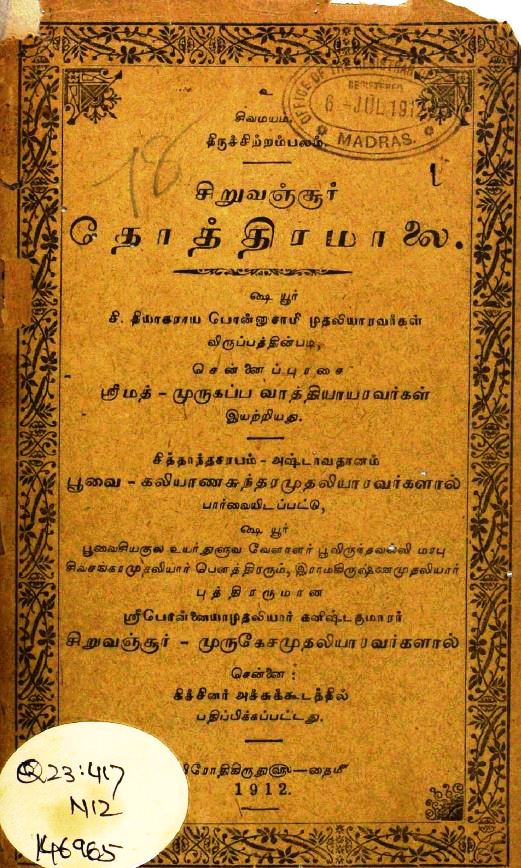 உ
சிவமயம்.
திருச்சிற்றம்பலம்.
OFFICE OF THE
REGISTERED
6 -JUL 1912
MADRAS.
18
சிறுவஞ்சூர்
தோத்திரமாலை.
ஷை யூர்
சி. தியாகராய பொன்னுசாமி முதலியாரவர்கள்
விருப்பத்தின்படி,
சென்னைப்புரசை
ஸ்ரீமத் - முருகப்ப வாத்தியாயரவர்கள்
இயற்றியது.
சித்தாந்தசரபம் - அஷ்டாவதானம்
பூவை - கலியாணசுந்தரமுதலியாரவர்களால்
பார்வையிடப்பட்டு,
ஷை யூர்
பூவைசியகுல உயர்துளுவ வேளாளர் பூவிருந்தவல்லி மரபு
சிவசங்கரமுதலியார் பௌத்திரரும், இராமகிருஷ்ணமுதலியார்
புத்திரருமான
ஸ்ரீபொன்னையாமுதலியார் கனிஷ்டகுமாரர்
சிறுவஞ்சூர் - முருகேசமுதலியாரவர்களால்
சென்னை:
கிச்சினர் அச்சுக்கூடத்தில்
பதிப்பிக்கப்பட்டது.
1912.
Q23:417
N12
146965